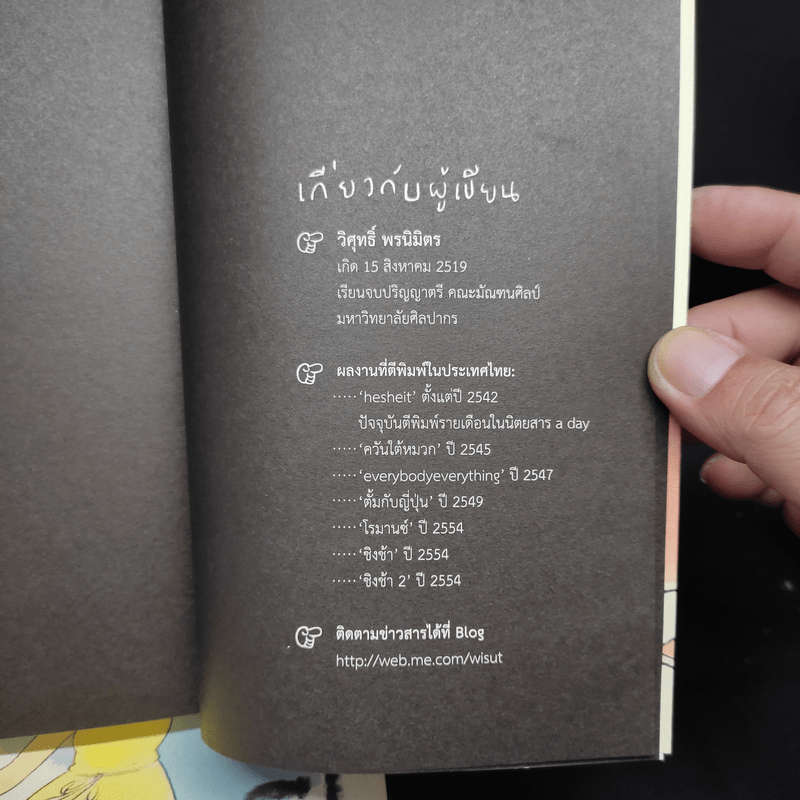 เกี่ยวกับผู้เขียน
วิศุทธิ์ พรนิมิตร
เกิด 15 สิงหาคม 2519
เรียนจบปริญญาตรี คณะมัณฑนศิลป์
มหาวิทยาลัยศิลปากร
ผลงานที่ตีพิมพ์ในประเทศไทย:
.....‘hesheit’ ตั้งแต่ปี 2542
ปัจจุบันตีพิมพ์รายเดือนในนิตยสาร a day
.....‘ควันใต้หมวก’ ปี 2545
.....‘everybodyeverything’ ปี 2547
.....‘ตั้มกับญี่ปุ่น’ ปี 2549
.....‘โรมานซ์’ ปี 2554
.....‘ชิงช้า’ ปี 2554
.....‘ชิงช้า 2’ ปี 2554
ติดตามข่าวสารได้ที่ Blog
http://web.me.com/wisut